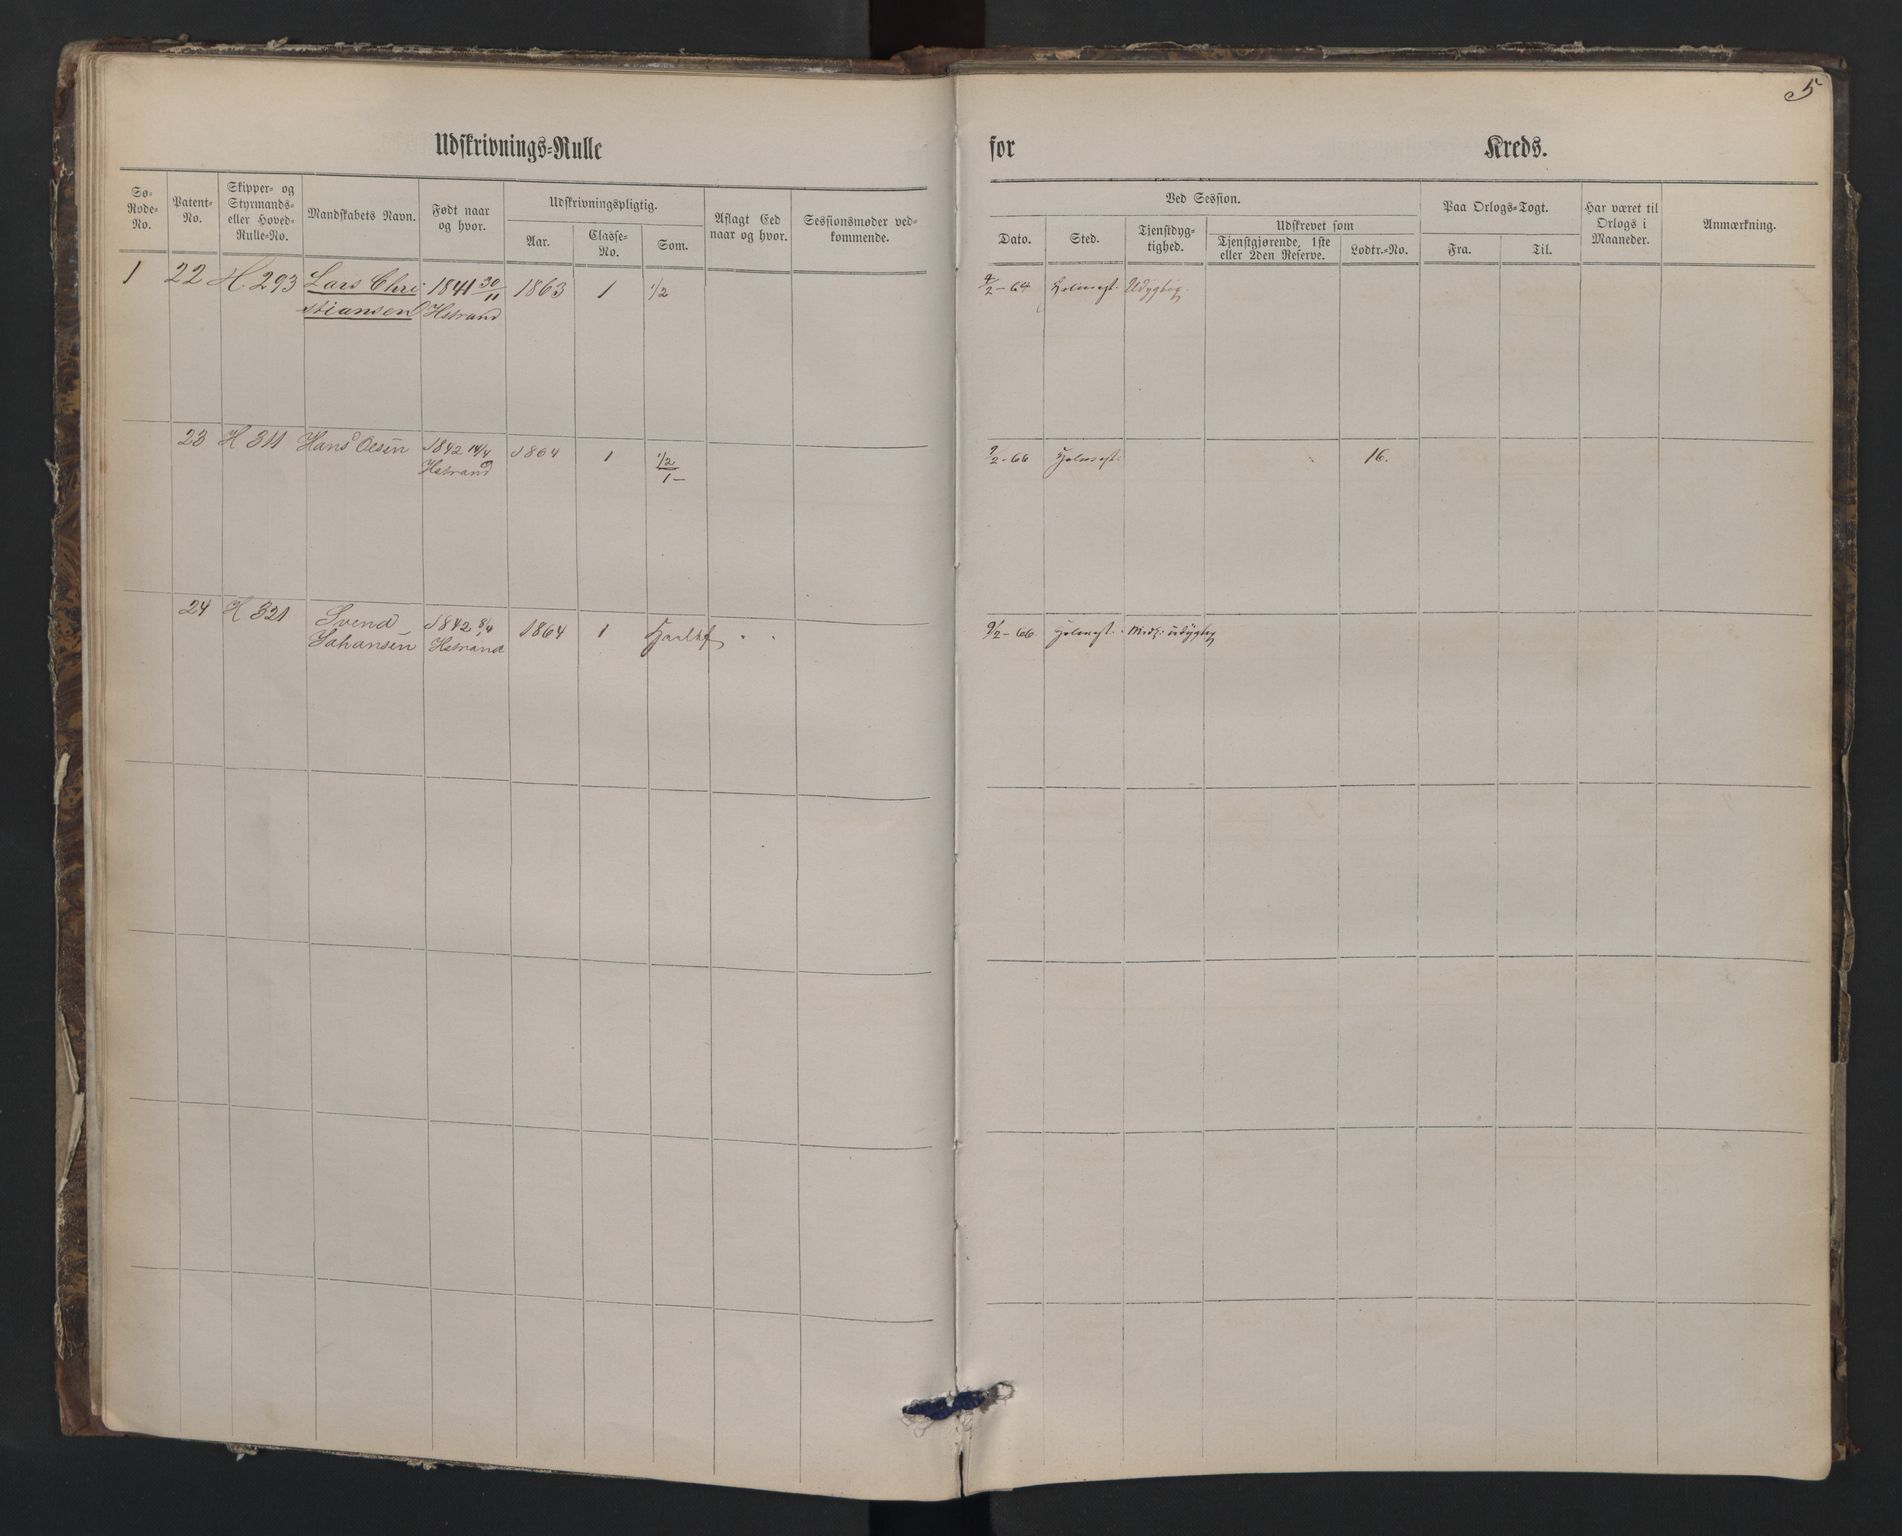 5
Udskrivnings-Rulle for Kreds.
Sø-Rode-No.
Patent-No.
Skipper- og Styrmands- eller Hoved-Rulle-No.
Mandskabets Navn.
Født naar og hvor.
Udskrivningspligtig.
Aar.
Classe-No.
Som.
Aflagt Eed naar og hvor.
Sessionsmøder vedkommende.
Ved Session.
Dato.
Sted.
Tjenstdygtighed.
Udskrevet som
Tjenstgjørende, 1ste eller 2den Reserve.
Lodtr.-No.
Paa Orlogs-Togt.
Fra.
Til.
Har været til Orlogs i Maaneder.
Anmærkning.
1 22 H. 293 Lars Chri- 1841 30/11 1863 1 1/2 4/2-64 Holmest. Udygtig.
stiansen Hstrand
23 H 311 Hans Olsen 1842 14/4 1864 1 1/2 9/2-66 Holmest. 16.
Hstrand 1
24 H 321 Svend 1842 8/4 1864 1 9/2-66 Holmest. Midl. udygtig
Johansen Hstrand